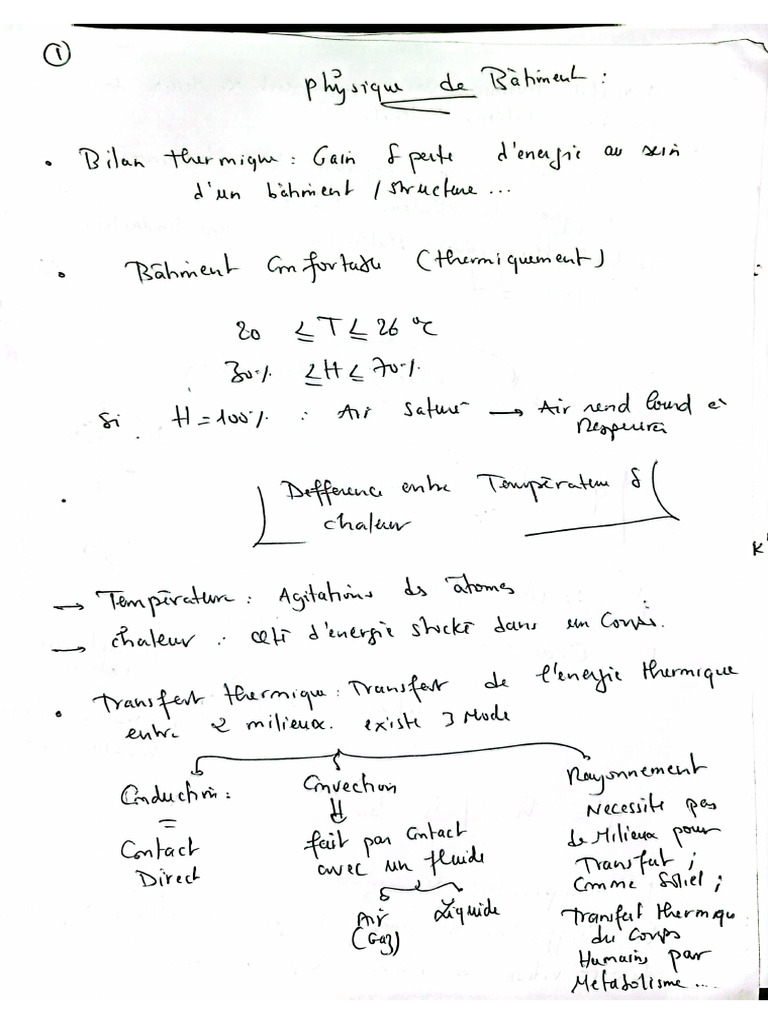 ①
Physique de Bâtiment :
• Bilan thermique : Gain & perte d'energie au sein
d'un bâtiment / structure ...
• Bâtiment Confortable (thermiquement)
20 ≤ T ≤ 26 °C
30% ≤ H ≤ 70%
Si H = 100% : Air saturé → Air rend lourd à
Respirer
• Defference entre Température &
chaleur
K
→ Température : Agitations ds atomes
→ chaleur : Qté d'energie stocké dans un Corps.
• Transfert thermique : Transfert de l'energie thermique
entre 2 milieux. existe 3 Mode
Conduction : Convection Rayonnement
= fait par Contact Necessite pas
Contact avec un fluide de Milieux pour
Direct Air Liquide Transfert ;
(Gaz) Comme Soliel ;
Transfert thermique
du Corps
Humains par
Metabolisme ....